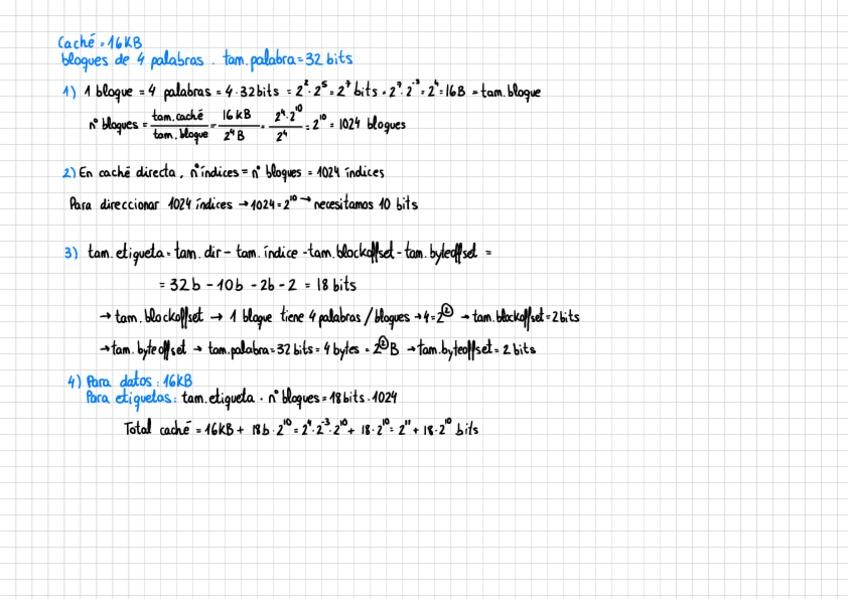 Caché = 16KB
bloques de 4 palabras . tam.palabra = 32 bits
1) 1 bloque = 4 palabras = 4·32bits = 2²·2⁵ = 2⁷ bits = 2⁷·2⁻³ = 2⁴ = 16B = tam.bloque
nº bloques = tam.caché / tam.bloque = 16 KB / 2⁴ B = 2⁴·2¹⁰ / 2⁴ = 2¹⁰ = 1024 bloques
2) En caché directa, nº índices = nº bloques = 1024 índices
Para direccionar 1024 índices → 1024 = 2¹⁰ → necesitamos 10 bits
3) tam.etiqueta = tam. dir - tam. índice - tam.blockoffset - tam.byteoffset =
= 32b - 10b - 2b - 2 = 18 bits
→ tam.blockoffset → 1 bloque tiene 4 palabras / bloques → 4 = 2② → tam.blockoffset = 2 bits
→ tam.byteoffset → tam.palabra = 32 bits = 4 bytes = 2② B → tam.byteoffset = 2 bits
4) Para datos : 16KB
Para etiquetas: tam.etiqueta · nº bloques = 18 bits · 1024
Total caché = 16KB + 18b · 2¹⁰ = 2⁴·2⁻³·2¹⁰ + 18·2¹⁰ = 2¹¹ + 18·2¹⁰ bits